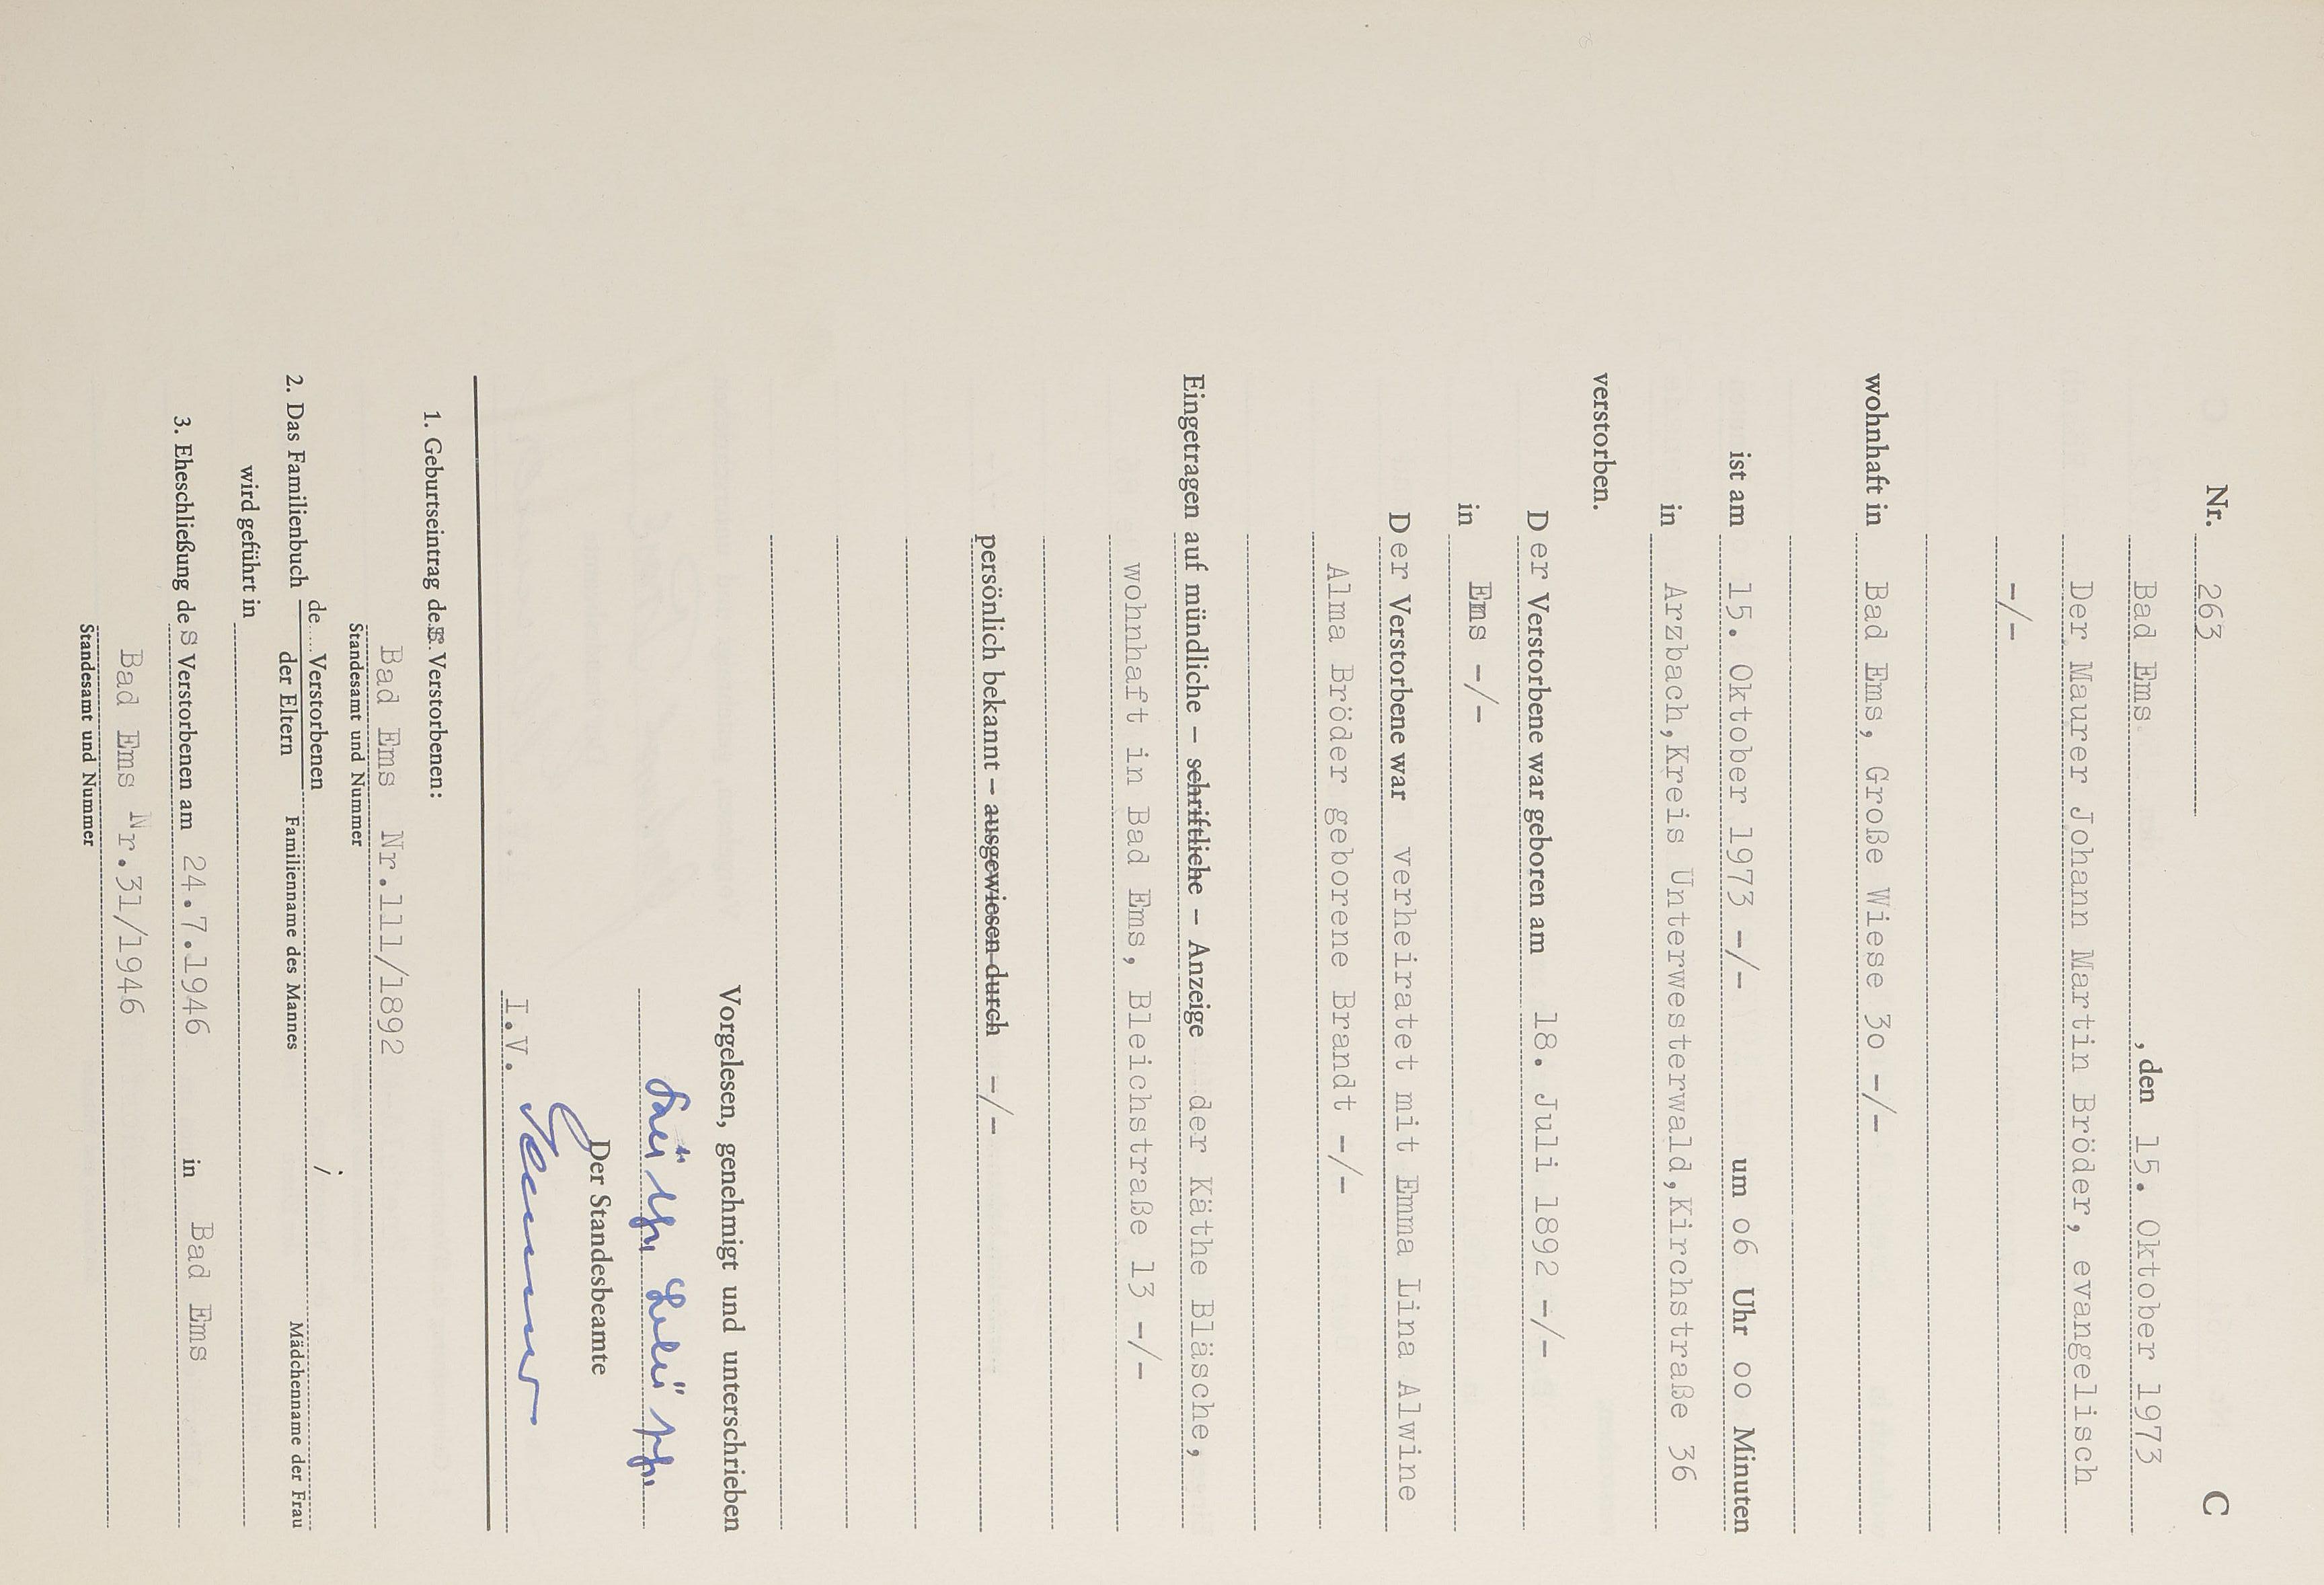 Nr. 263 C
Bad Ems , den 15. Oktober 1973
Der Maurer Johann Martin Bröder, evangelisch
-/-
wohnhaft in Bad Ems, Große Wiese 3o -/-
ist am 15. Oktober 1973 -/- um o6 Uhr oo Minuten
in Arzbach,Kreis Unterwesterwald,Kirchstraße 36
verstorben.
Der Verstorbene war geboren am 18. Juli 1892 -/-
in Ems -/-
Der Verstorbene war verheiratet mit Emma Lina Alwine
Alma Bröder geborene Brandt -/-
Eingetragen auf mündliche – schriftliche – Anzeige der Käthe Bläsche,
wohnhaft in Bad Ems, Bleichstraße 13 -/-
persönlich bekannt – ausgewiesen durch -/-
Vorgelesen, genehmigt und unterschrieben
Der Standesbeamte
I.V.
1. Geburtseintrag des Verstorbenen:
Bad Ems Nr.111/1892
Standesamt und Nummer
2. Das Familienbuch de.... Verstorbenen / der Eltern
Familienname des Mannes Mädchenname der Frau
wird geführt in
3. Eheschließung des Verstorbenen am 24.7.1946 in Bad Ems
Bad Ems Nr.31/1946
Standesamt und Nummer